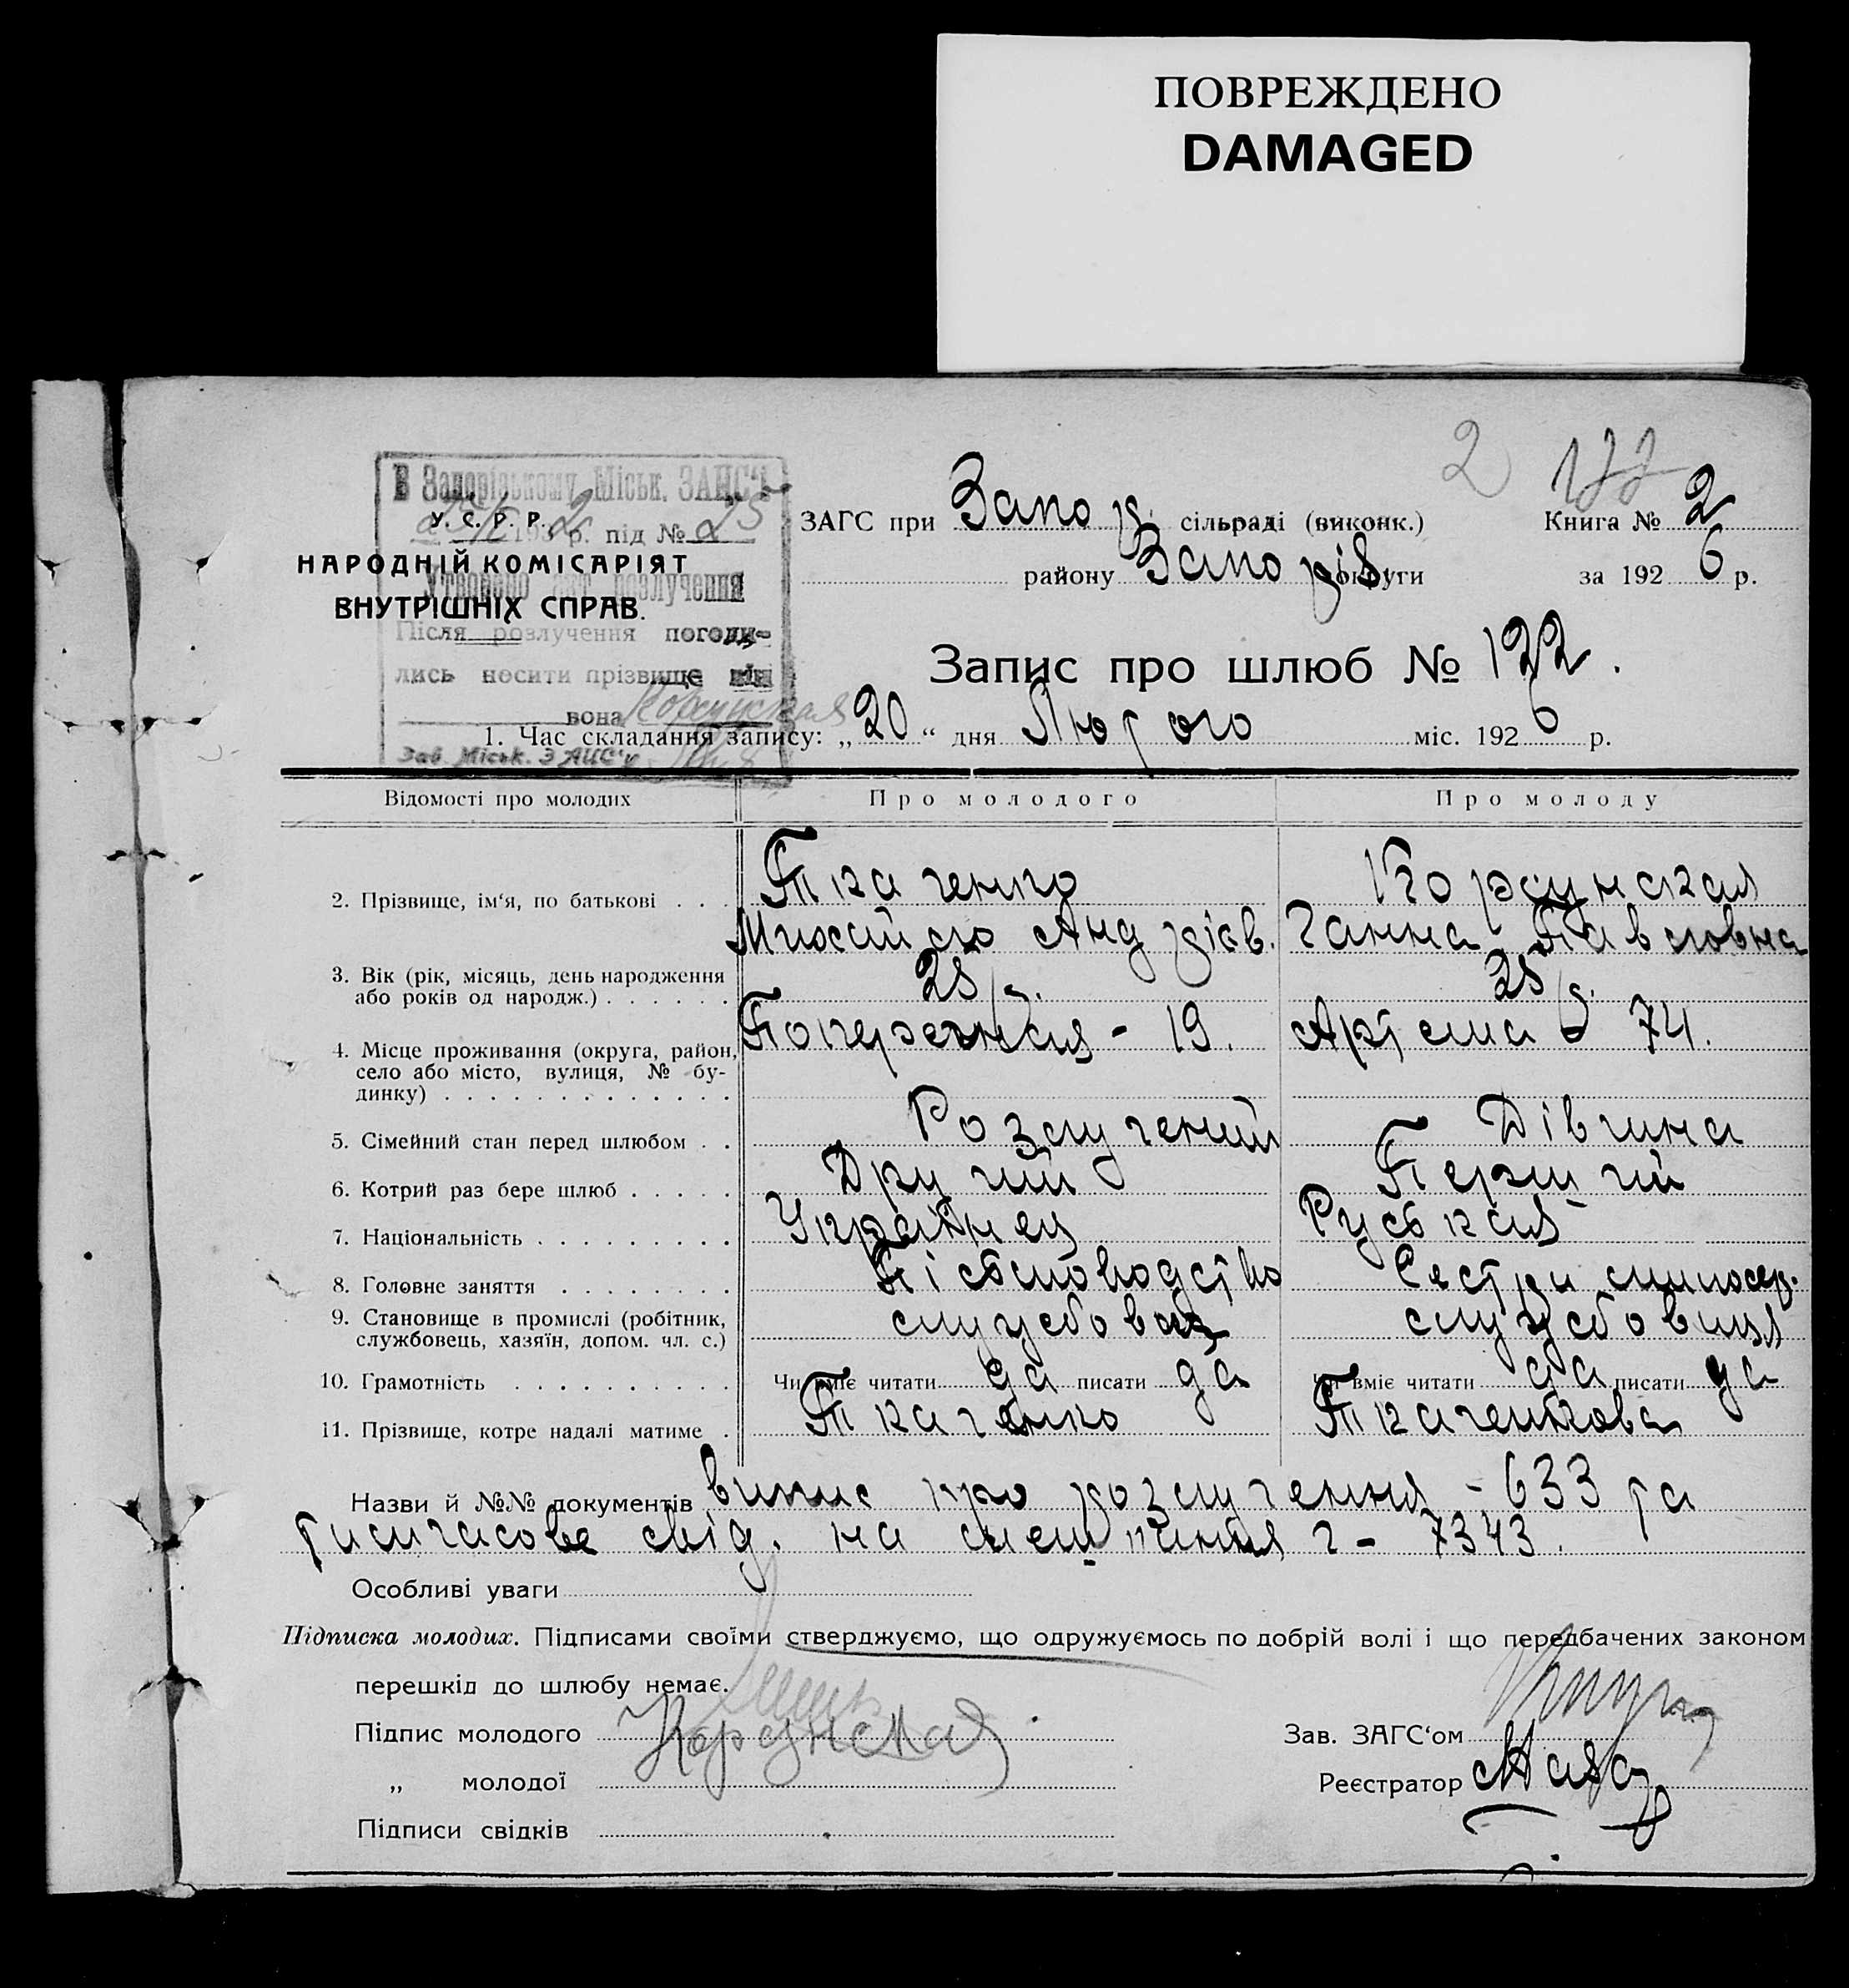 ПОВРЕЖДЕНО
DAMAGED
2 122
В Запорізькому Міськ. ЗАГС'і
У. С. Р. Р.
193 2 р. під № 25
НАРОДНІЙ КОМІСАРІЯТ
ВНУТРІШНІХ СПРАВ.
Утворено акт розлучення
Після розлучення погоди-
лись носити прізвище він
вона Корсунская
Зав. Міськ. ЗАГС'у
ЗАГС при Запор. сільраді (виконк.) Книга № 2
району Запоріз. округи за 192 6 р.
Запис про шлюб № 122.
1. Час складання запису: „ 20 “ дня Лютого міс. 192 6 р.
Відомості про молодих Про молодого Про молоду
2. Прізвище, ім‘я, по батькові . . . Ткаченко Корсунская
Михайло Андріев. Ганна Павловна
3. Вік (рік, місяць, день народження 25 р. 25 р.
або років од народж.) . . . . . .
4. Місце проживання (округа, район, Поперечная - 19. Артема 74.
село або місто, вулиця, № бу-
динку) . . . . . . . . . . . . .
5. Сімейний стан перед шлюбом . . Розлучений Дівчина
6. Котрий раз бере шлюб . . . . . Другий Перший
7. Національність . . . . . . . . . Українец Руськая
8. Головне заняття . . . . . . . . Сестра милосер.
9. Становище в промислі (робітник, службовец службовиця
службовець, хазяїн, допом. чл. с.)
10. Грамотність . . . . . . . . . . Чи вміє читати да писати да Чи вміє читати да писати да
11. Прізвище, котре надалі матиме . Ткаченко Ткаченкова
Назви й №№ документів випис про розлучення - 633 та
тимчасове свід. на мешкання г - 7343.
Особливі уваги
Підписка молодих. Підписами своїми стверджуємо, що одружуємось по добрій волі і що передбачених законом
перешкід до шлюбу немає.
Підпис молодого Корсунская Зав. ЗАГС‘ом
„ молодої Реєстратор
Підписи свідків